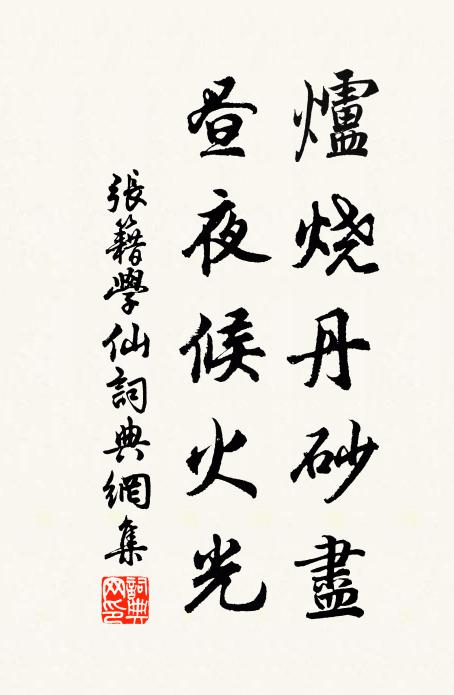 爐烧丹砂盡
昼夜候火光
張籍學仙詞典網集
詞典网印